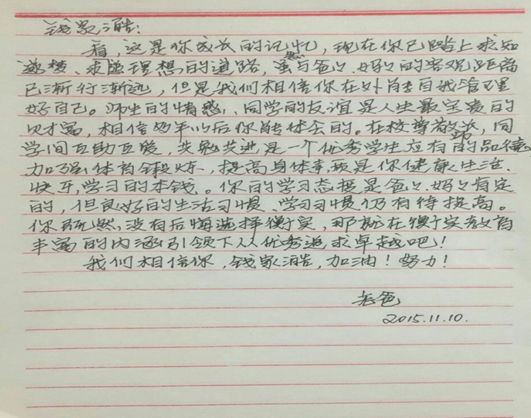 钱家浩:
看,这是你成长的记忆,现在你已踏上求知
逐梦、求医理想的道路,虽与爸爸、妈妈的客观距离
已渐行渐远,但是我们相信你在外能自我管理
好自己。师生的情感、同学的友谊是人生最宝贵的
财富,相信毕业以后你能体会的。在校尊敬师长,同
学间互助互爱,共勉共进是一个优秀学生应有的品德
加强体育锻炼,提高身体素质是你健康生活、
快乐学习的本钱。你的学习态度是爸爸、妈妈肯定
的,但良好的生活习惯、学习习惯仍有待提高。
你既然没有后悔选择衡实,那就在衡实教育
丰富的内涵引领下从优秀追求卓越吧!
我们相信你,钱家浩,加油!努力!
老爸
2015.11.10.